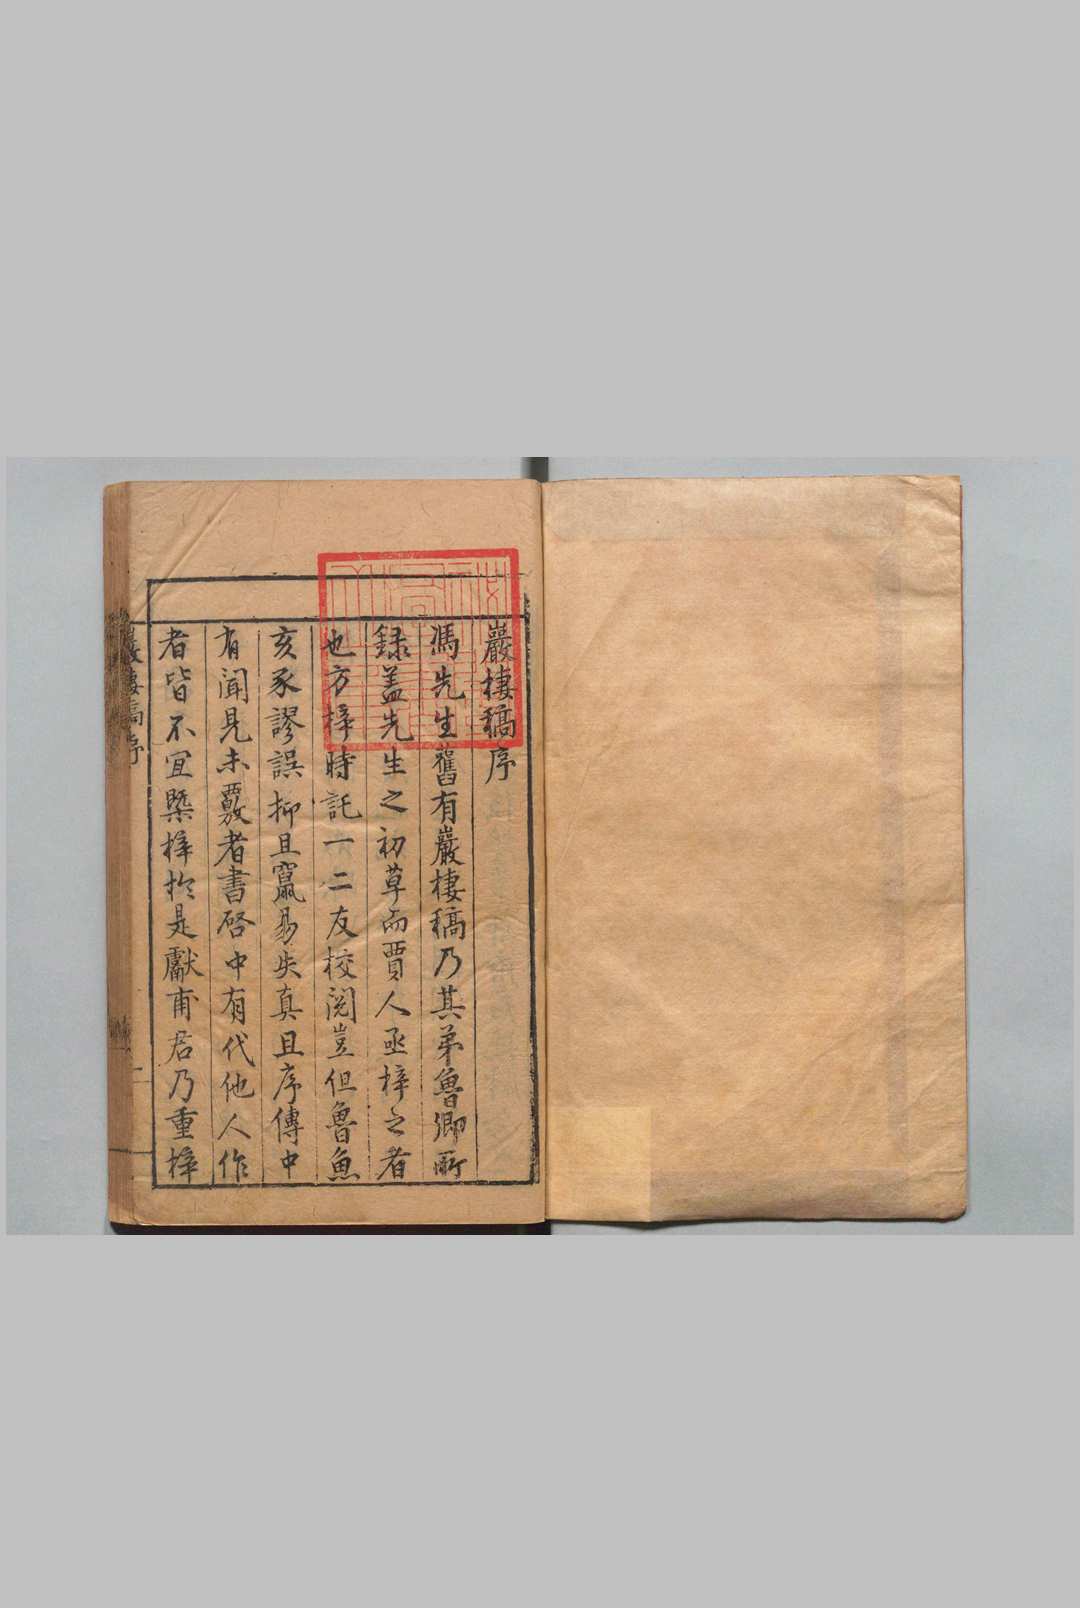 巖棲稿序
馮先生舊有巖棲稿乃其弟魯卿所
録盖先生之初草而賈人亟梓之者
也方梓時託一二友校閱豈但魯魚
亥豕謬誤抑且竄易失真且序傳中
有聞見未覈者書啓中有代他人作
者皆不宜槩梓於是獻甫君乃重梓
巖棲稿序